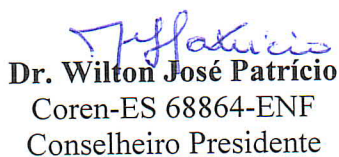 Dr. Wilton José Patrício
Coren-ES 68864-ENF
Conselheiro Presidente